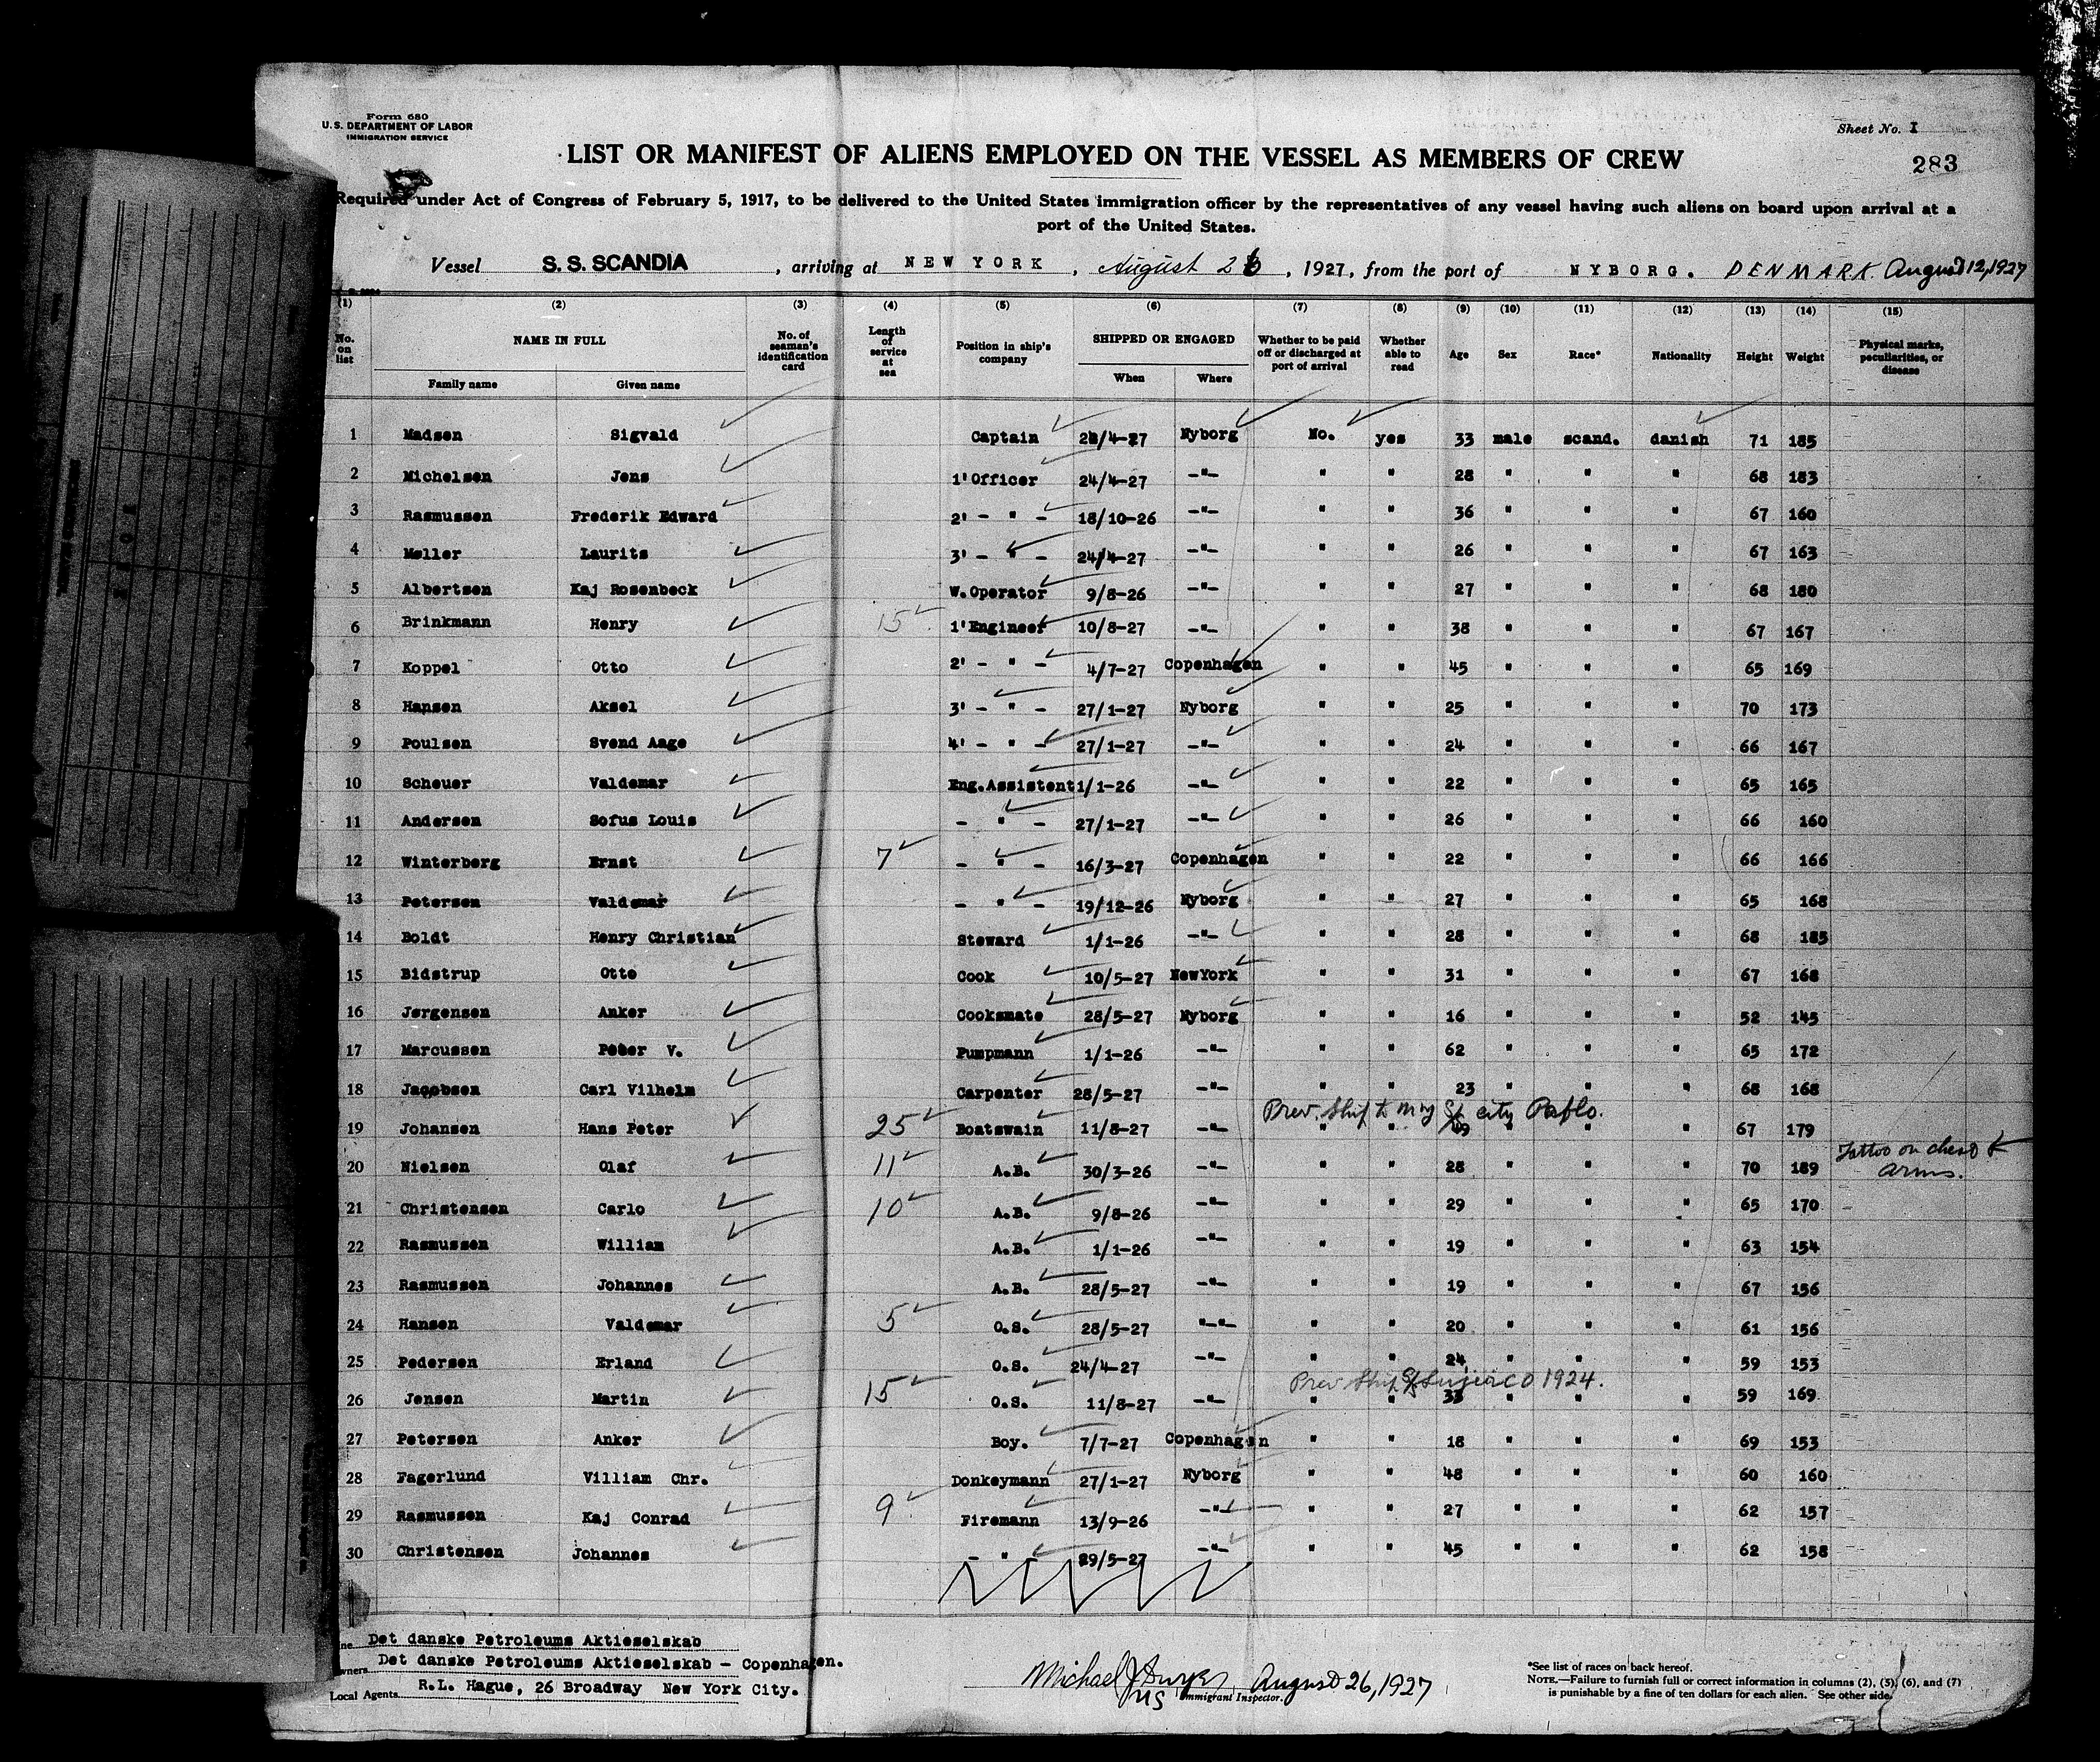 Form 680
U.S. DEPARTMENT OF LABOR
IMMIGRATION SERVICE
Sheet No. I
LIST OR MANIFEST OF ALIENS EMPLOYED ON THE VESSEL AS MEMBERS OF CREW
283
Required under Act of Congress of February 5, 1917, to be delivered to the United States immigration officer by the representatives of any vessel having such aliens on board upon arrival at a
port of the United States.
Vessel S. S. SCANDIA, arriving at NEW YORK, August 26, 1927, from the port of NYBORG. DENMARK. August 12, 1927
(1) (2) (3) (4) (5) (6) (7) (8) (9) (10) (11) (12) (13) (14) (15)
No. on list NAME IN FULL Family name Given name No. of seaman's identification card Length of service at sea Position in ship's company SHIPPED OR ENGAGED When Where Whether to be paid off or discharged at port of arrival Whether able to read Age Sex Race* Nationality Height Weight Physical marks, peculiarities, or disease
1 Madsen Sigvald Captain 24/4-27 Nyborg No. yes 33 male scand. danish 71 185
2 Michelsen Jens 1'Officer 24/4-27 -"- " " 28 " " " 68 183
3 Rasmussen Frederik Edward 2' - " - 18/10-26 -"- " " 36 " " " 67 160
4 Møller Laurits 3' - " - 24/4-27 -"- " " 26 " " " 67 163
5 Albertsen Kaj Rosenbeck W.Operator 9/8-26 -"- " " 27 " " " 68 180
6 Brinkmann Henry 15 1'Engineer 10/8-27 -"- " " 38 " " " 67 167
7 Koppel Otto 2' - " - 4/7-27 Copenhagen " " 45 " " " 65 169
8 Hansen Aksel 3' - " - 27/1-27 Nyborg " " 25 " " " 70 173
9 Poulsen Svend Aage 4' - " - 27/1-27 -"- " " 24 " " " 66 167
10 Scheuer Valdemar Eng.Assistent 1/1-26 -"- " " 22 " " " 65 165
11 Andersen Sofus Louis - " - 27/1-27 -"- " " 26 " " " 66 160
12 Winterberg Ernst 7 - " - 16/3-27 Copenhagen " " 22 " " " 66 166
13 Petersen Valdemar - " - 19/12-26 Nyborg " " 27 " " " 65 168
14 Boldt Henry Christian Steward 1/1-26 -"- " " 28 " " " 68 185
15 Bidstrup Otto Cook 10/5-27 NewYork " " 31 " " " 67 168
16 Jørgensen Anker Cooksmate 28/5-27 Nyborg " " 16 " " " 52 145
17 Marcussen Peter V. Pumpmann 1/1-26 -"- " " 62 " " " 65 172
18 Jacobsen Carl Vilhelm Carpenter 28/5-27 -"- " " 23 " " " 68 168
Prev. Ship to N.Y. S/S city
19 Johansen Hans Peter 25 Boatswain 11/8-27 -"- " " 49 " " " 67 179
20 Nielsen Olaf 11 A.B. 30/3-26 -"- " " 28 " " " 70 189 Tattoo on chest & arms.
21 Christensen Carlo 10 A.B. 9/8-26 -"- " " 29 " " " 65 170
22 Rasmussen William A.B. 1/1-26 -"- " " 19 " " " 63 154
23 Rasmussen Johannes A.B. 28/5-27 -"- " " 19 " " " 67 156
24 Hansen Valdemar 5 O.S. 28/5-27 "-"- " " 20 " " " 61 156
25 Pedersen Erland O.S. 24/4-27 -"- " " 24 " " " 59 153
Prev Ship S/S 1924.
26 Jensen Martin 15 O.S. 11/8-27 -"- " " 33 " " " 59 169
27 Petersen Anker Boy. 7/7-27 Copenhagen " " 18 " " " 69 153
28 Fagerlund Villiam Chr. Donkeymann 27/1-27 Nyborg " " 48 " " " 60 160
29 Rasmussen Kaj Conrad 9 Firemann 13/9-26 -"- " " 27 " " " 62 157
30 Christensen Johannes - " - 29/5-27 -"- " " 45 " " " 62 158
Det danske Petroleums Aktieselskab
Owners Det danske Petroleums Aktieselskab - Copenhagen.
Local Agents R.L. Hague, 26 Broadway New York City.
Michael J Dwyer August 26, 1927
US Immigrant Inspector.
*See list of races on back hereof.
NOTE.—Failure to furnish full or correct information in columns (2), (5), (6), and (7)
is punishable by a fine of ten dollars for each alien. See other side.